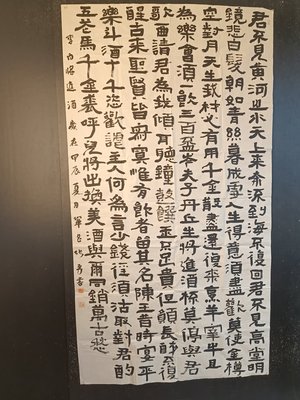 君不見黃河之水天上來奔流到海不復回君不見高堂明
鏡悲白髮朝如青絲暮成雪人生得意須盡歡莫使金樽
空對月天生我材必有用千金散盡還復來烹羊宰牛且
為樂會須一飲三百盃岑夫子丹丘生將進酒杯莫停與君
歌一曲請君為我傾耳聽鐘鼓饌玉不足貴但願長醉不復
醒古來聖賢皆寂寞惟有飲者留其名陳王昔時宴平
樂斗酒十千恣歡謔主人何為言少錢徑須沽取對君酌
五花馬千金裘呼兒將出換美酒與爾同銷萬古愁
李白將進酒 歲在甲辰夏月 書